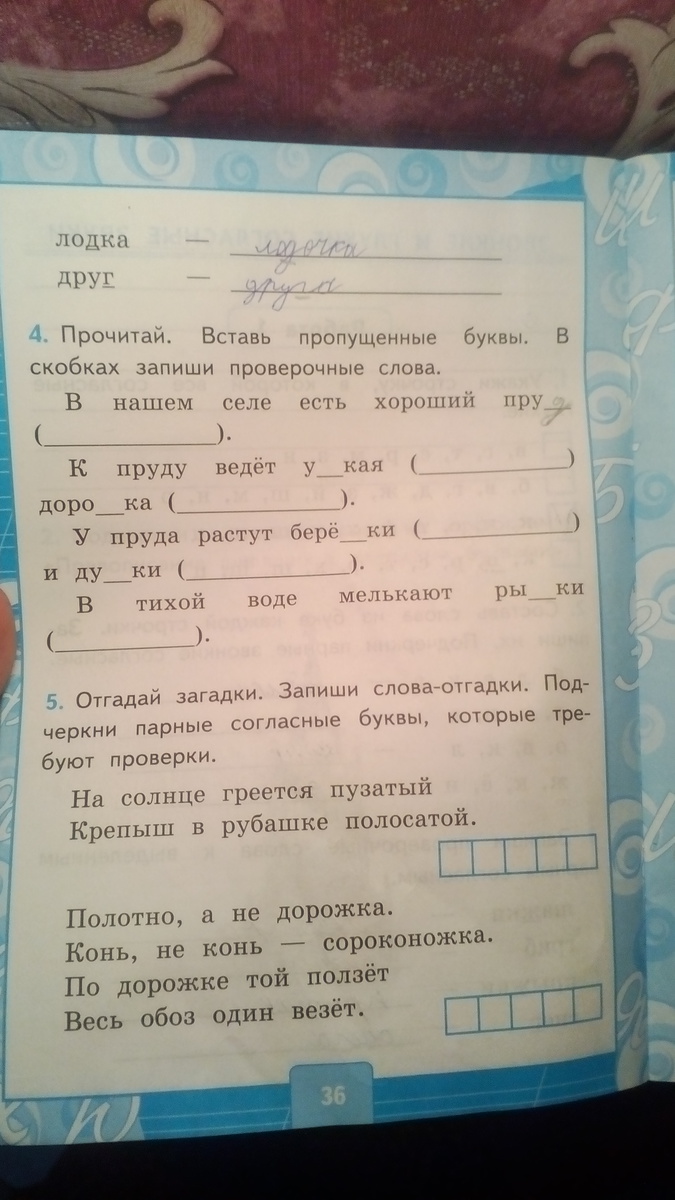 лодка — лодочка
друг — друга
4. Прочитай. Вставь пропущенные буквы. В
скобках запиши проверочные слова.
В нашем селе есть хороший пруд
(____________).
К пруду ведёт у__кая (____________)
доро__ка (____________).
У пруда растут берё__ки (____________)
и ду__ки (____________).
В тихой воде мелькают ры__ки
(____________).
5. Отгадай загадки. Запиши слова-отгадки. Под-
черкни парные согласные буквы, которые тре-
буют проверки.
На солнце греется пузатый
Крепыш в рубашке полосатой.
Полотно, а не дорожка.
Конь, не конь — сороконожка.
По дорожке той ползёт
Весь обоз один везёт.
36